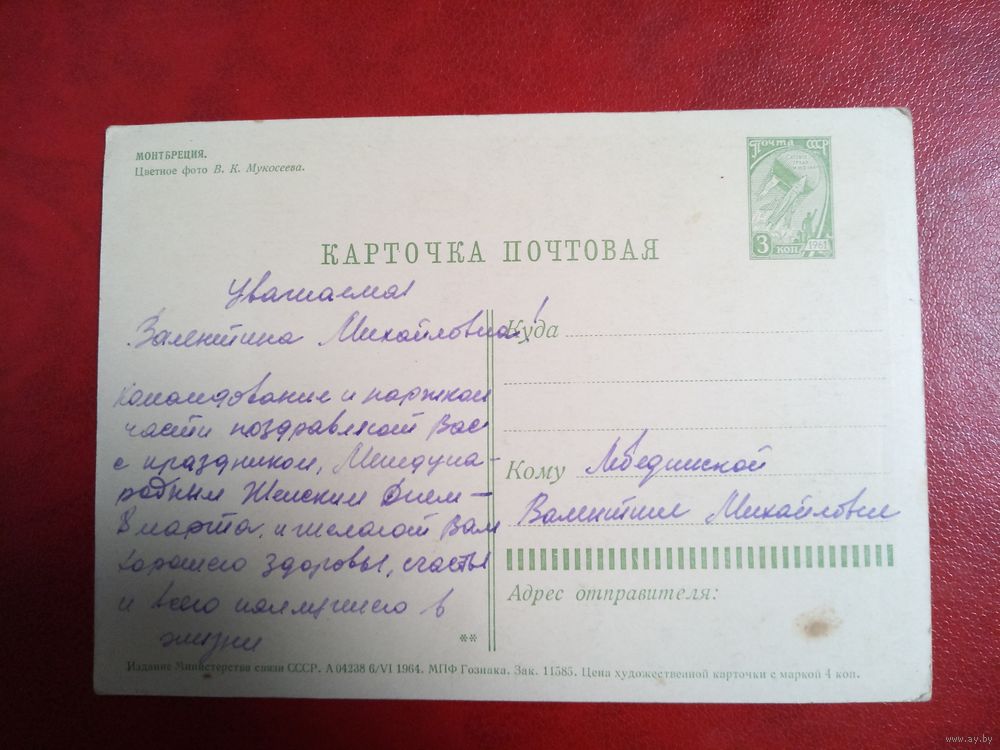 МОНТБРЕЦИЯ.
Цветное фото В. К. Мукосеева.
ПОЧТА СССР
3 КОП
1961
КАРТОЧКА ПОЧТОВАЯ
Уважаемая
Валентина Михайловна!
Командование и партком
части поздравляют Вас
с праздником, Междуна-
родным Женским Днем —
8 марта, и желают Вам
хорошего здоровья, счастья
и всего наилучшего в
жизни
**
Куда
Кому Лебединской
Валентине Михайловне
Адрес отправителя:
Издание Министерства связи СССР. А 04238 6/VI 1964. МПФ Гознака. Зак. 11585. Цена художественной карточки с маркой 4 коп.
www.ay.by